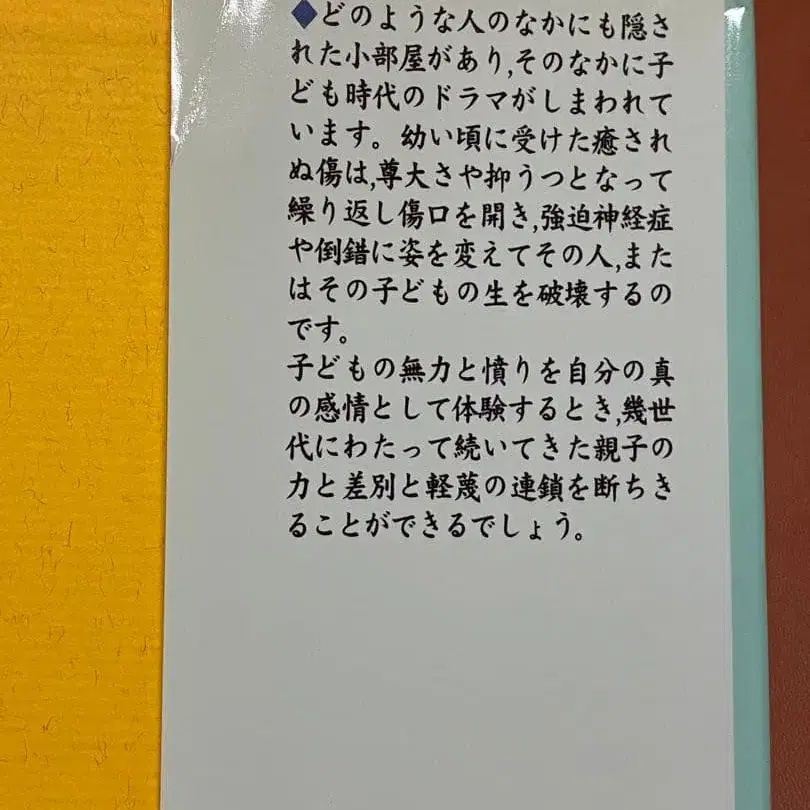 ◆どのような人のなかにも隠さ
れた小部屋があり,そのなかに子
ども時代のドラマがしまわれて
います。幼い頃に受けた癒され
ぬ傷は,尊大さや抑うつとなって
繰り返し傷口を開き,強迫神経症
や倒錯に姿を変えてその人,また
はその子どもの生を破壊するの
です。
子どもの無力と憤りを自分の真
の感情として体験するとき,幾世
代にわたって続いてきた親子の
力と差別と軽蔑の連鎖を断ちき
ることができるでしょう。